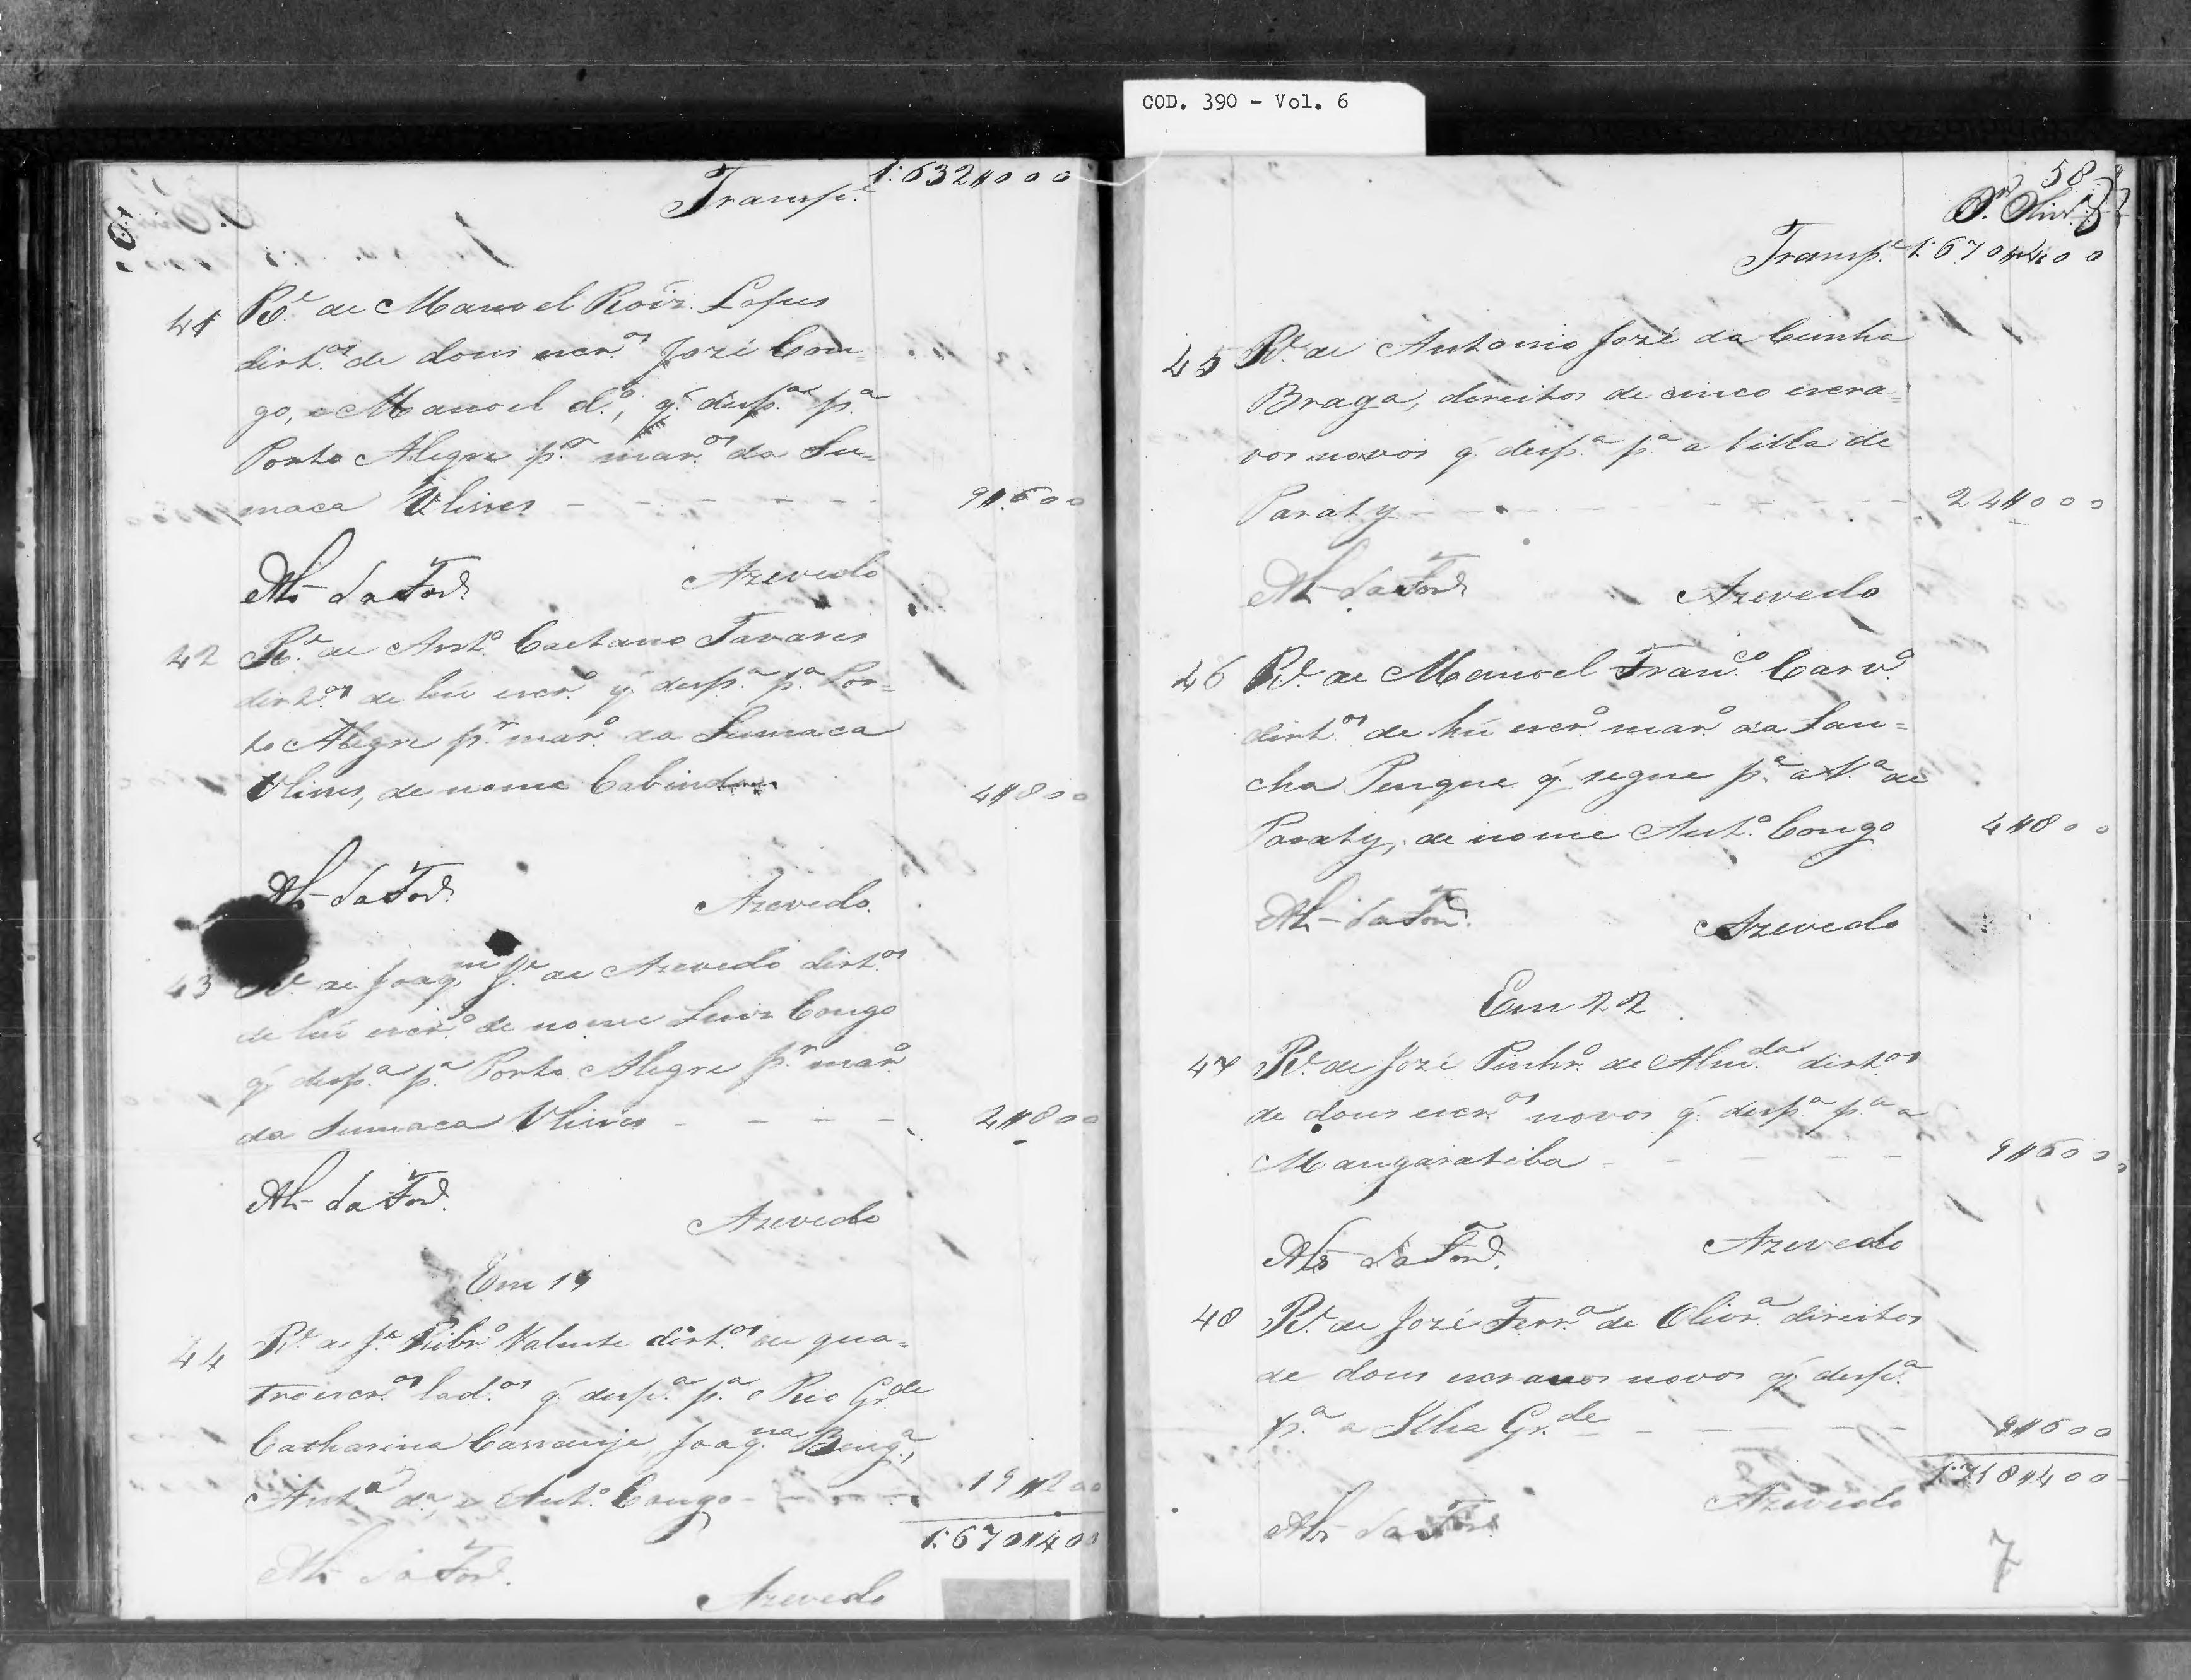 COD. 390 - Vol. 6
Transp.e 1:632$000
41 R.e de Manoel Roiz. Lopes
dirt.os de dous escr.os José Con=
go, e Manoel d.o, q̃ desp.a p.a
Porto Alegre p.a mar.os da Su=
maca Ulisses - - - - - - 9$600
Als da Fon.ca Azevedo
42 R.e de Ant.o Caetano Tavares
dirt.os de hũ escr.o q̃ desp.a p.a Por=
to Alegre p.r mar.o da Sumaca
Ulisses, de nome Cabinda 4$800
Als da Fon.ca Azevedo
43 R.e de Joaq.m J.e de Azevedo dirt.os
de hũ escr.o de nome Luiz Congo
q̃ desp.a p.a Porto Alegre p.r mar.o
da Sumaca Ulisses - - - - 4$800
Als da Fon.ca Azevedo
Em 19
44 R.e de J.e Ribr.o Valente dirt.os de qua=
tro escr.os lad.os q̃ desp.a p.a o Rio Gr.de
Catharina Cassange, Joaq.na Beng.a,
Ant.a d.a, e Ant.o Congo - - - - 19$200
1:670$400
Als da Fon.ca Azevedo
58
Transp.e 1:670$400
45 R.e de Antonio José da Cunha
Braga, direitos de cinco escra=
vos novos q̃ desp.a p.a a Villa de
Paraty - - - - - - - 24$000
Als da Fon.ca Azevedo
46 R.e de Manoel Fran.co Carv.o
dirt.os de hũ escr.o mar.o da Lan=
cha Pengue q̃ segue p.a a V.a de
Paraty, de nome Ant.o Congo 4$800
Als da Fon.ca Azevedo
Em 22
47 R.e de José Pinhr.o de Alm.da dirt.os
de dous escr.os novos q̃ desp.a p.a a
Mangaratiba - - - - - 9$600
Als da Fon.ca Azevedo
48 R.e de José Ferr.a de Olivr.a direitos
de dous escravos novos q̃ desp.a
p.a a Ilha Gr.de - - - - - 9$600
1:718$400
Als da Fon.ca Azevedo
7